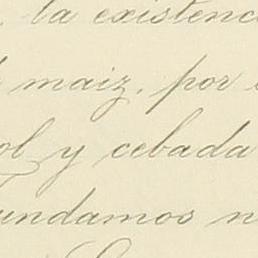 la existenc
maiz, por
ol y cebada
undamos n